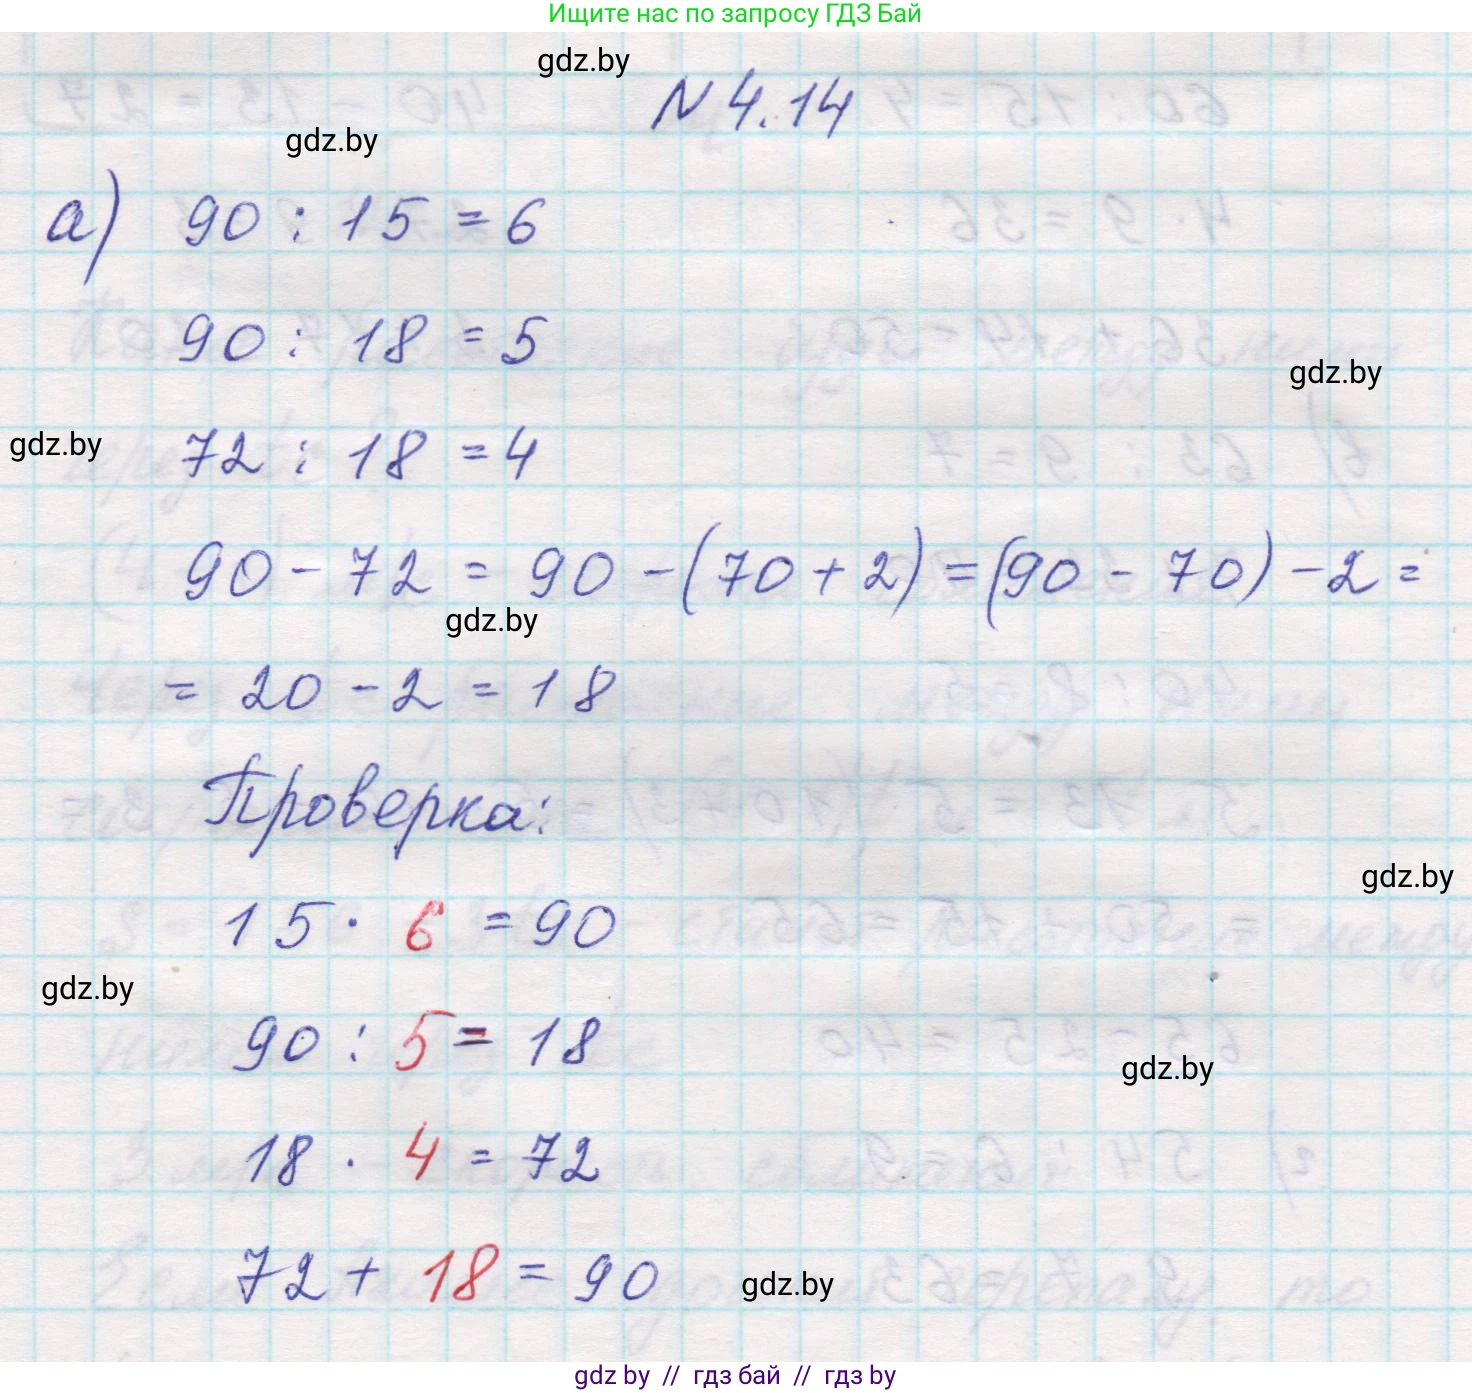 Ищите нас по запросу ГДЗ Бай
gdz.by
N 4.14
gdz.by
а) 90 : 15 = 6
90 : 18 = 5
gdz.by
gdz.by
72 : 18 = 4
90 - 72 = 90 - (70 + 2) = (90 - 70) - 2 =
gdz.by
= 20 - 2 = 18
Проверка:
gdz.by
15 · 6 = 90
gdz.by
90 : 5 = 18
gdz.by
18 · 4 = 72
72 + 18 = 90
gdz.by
gdz by // гдз бай // гдз by